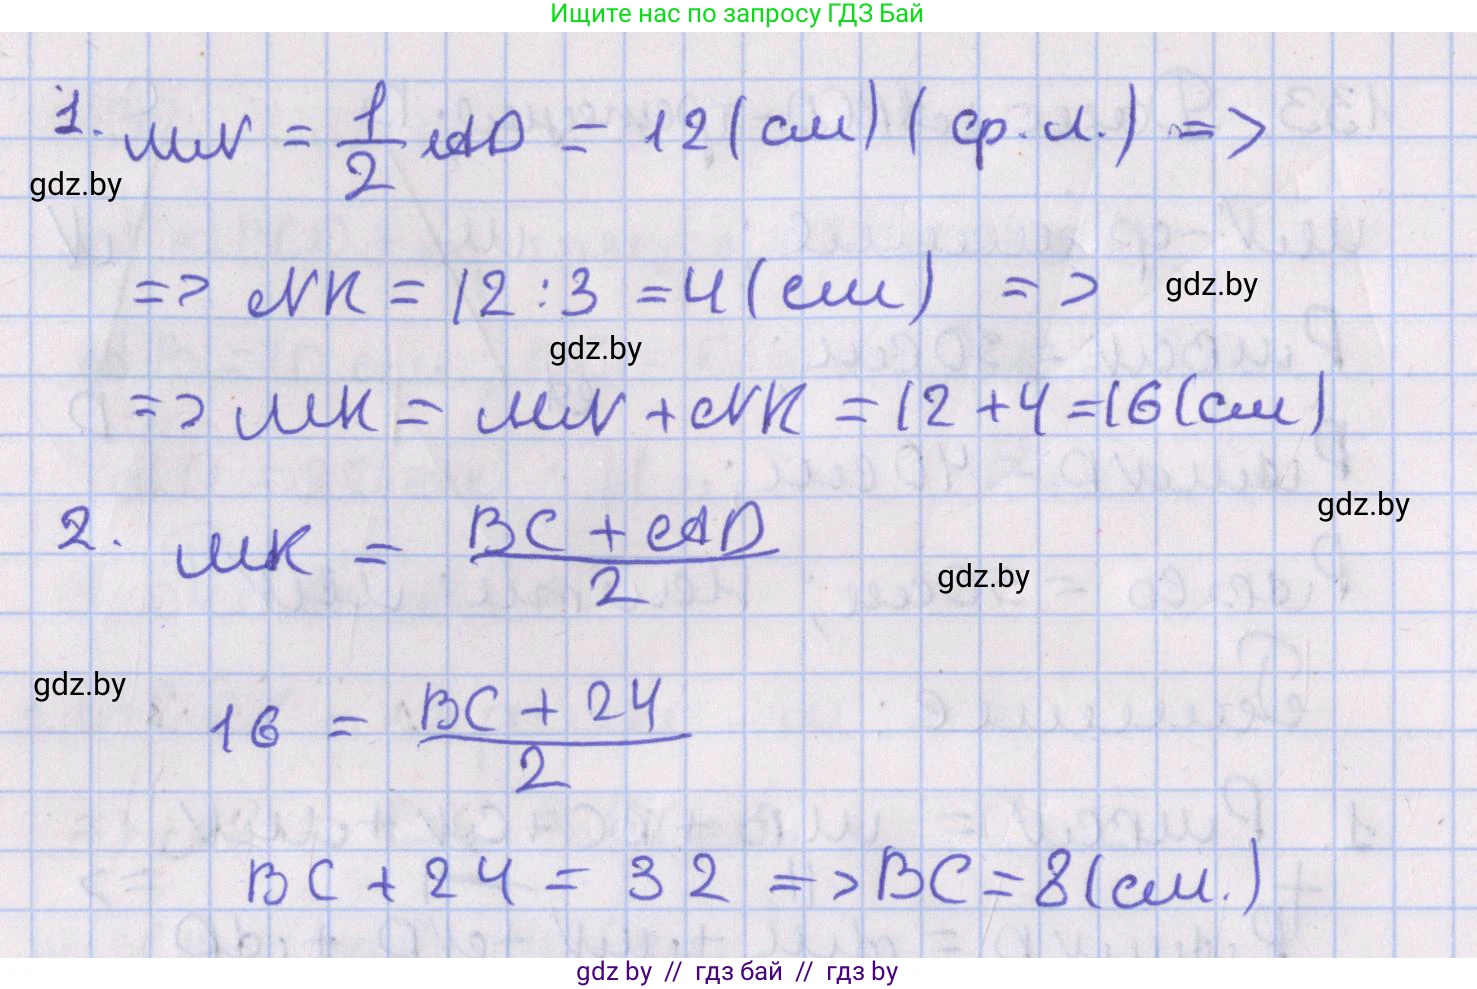 Ищите нас по запросу ГДЗ Бай
1. MN = 1/2 AD = 12 (см) (ср. л.) =>
gdz.by
=> NK = 12 : 3 = 4 (см) =>
gdz.by
gdz.by
=> MK = MN + NK = 12 + 4 = 16 (см)
gdz.by
2. MK = (BC + AD)/2
gdz.by
gdz.by
16 = (BC + 24)/2
BC + 24 = 32 => BC = 8 (см.)
gdz by // гдз бай // гдз by